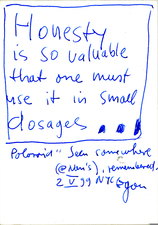 Honesty
is so valuable
that one must
use it in small
dosages...
Seen somewhere
(@Neri's), remembered.
2 V 99 NYC